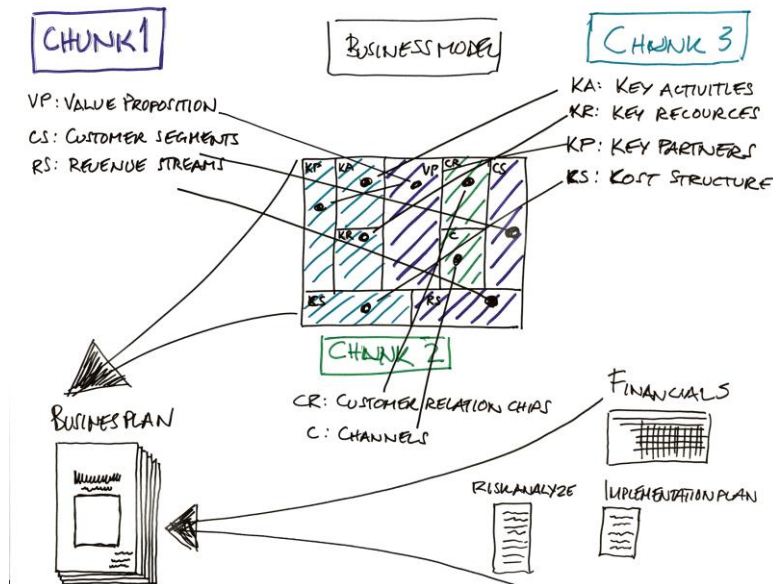 CHUNK1
BUSINESS MODEL
CHUNK 3
VP: VALUE PROPOSITION
CS: CUSTOMER SEGMENTS
RS: REVENUE STREAMS
KA: KEY ACTIVITIES
KR: KEY RECOURCES
KP: KEY PARTNERS
KS: KOST STRUCTURE
KP
KA
VP
CR
CS
KR
C
KS
RS
CHUNK 2
CR: CUSTOMER RELATION CHIPS
C: CHANNELS
BUSINESPLAN
FINANCIALS
RISKANALYZE
IMPLEMENTATIONPLAN